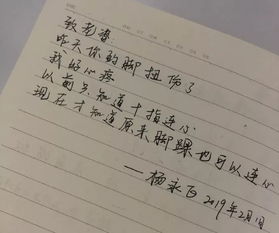 致老婆:
昨天你的脚扭伤了
我好心疼
以前只知道十指连心
现在才知道原来脚踝也可以连心
——杨永
2019年2月1日